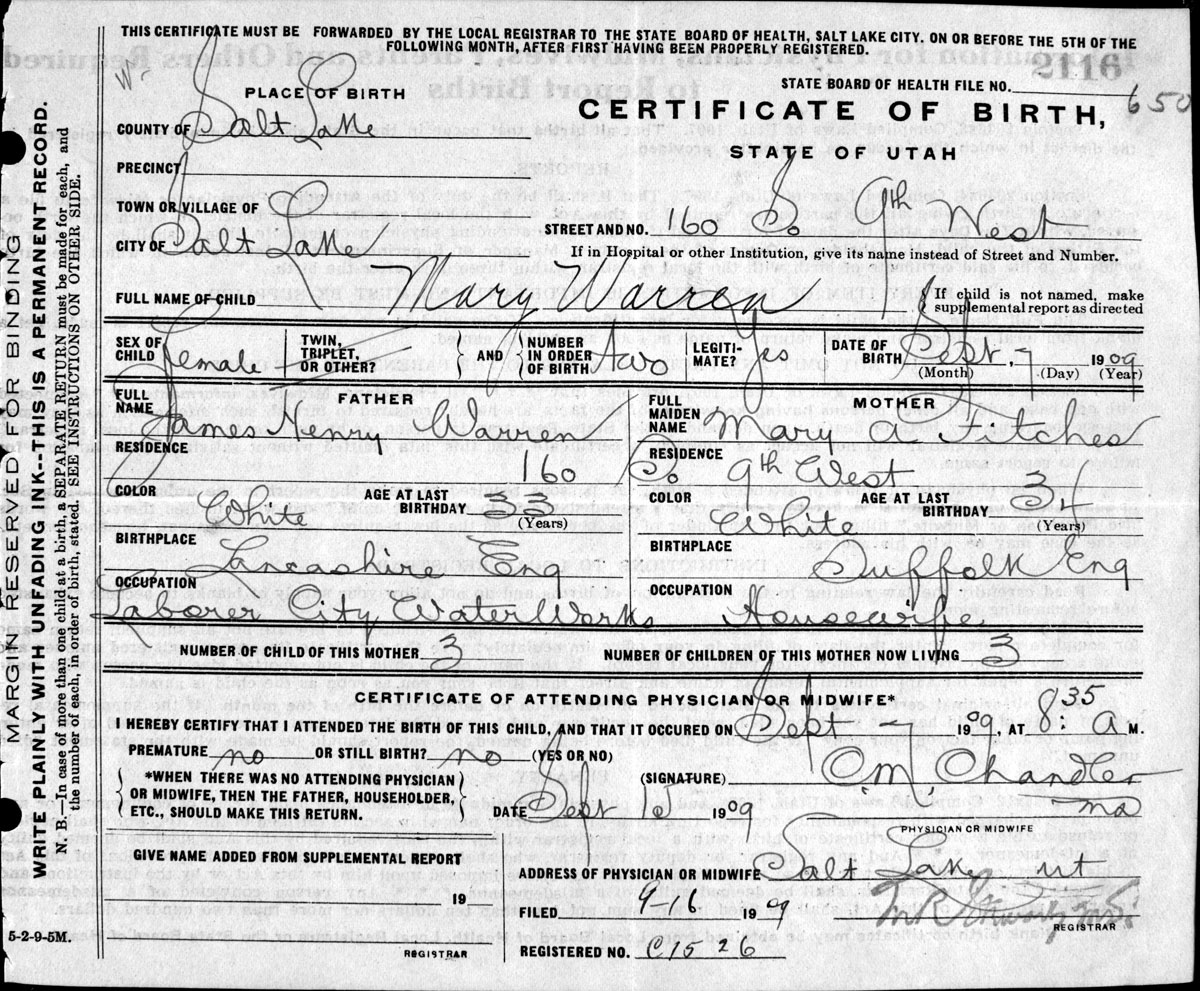 THIS CERTIFICATE MUST BE FORWARDED BY THE LOCAL REGISTRAR TO THE STATE BOARD OF HEALTH, SALT LAKE CITY, ON OR BEFORE THE 5TH OF THE
FOLLOWING MONTH, AFTER FIRST HAVING BEEN PROPERLY REGISTERED.
MARGIN RESERVED FOR BINDING
WRITE PLAINLY WITH UNFADING INK---THIS IS A PERMANENT RECORD.
N. B.—In case of more than one child at a birth, a SEPARATE RETURN must be made for each, and
the number of each, in order of birth, stated. SEE INSTRUCTIONS ON OTHER SIDE.
STATE BOARD OF HEALTH FILE NO. 650
PLACE OF BIRTH
CERTIFICATE OF BIRTH,
STATE OF UTAH
COUNTY OF Salt Lake
PRECINCT
TOWN OR VILLAGE OF
CITY OF Salt Lake
STREET AND NO. 160 So 9th West
If in Hospital or other Institution, give its name instead of Street and Number.
FULL NAME OF CHILD Mary Warren { If child is not named, make
supplemental report as directed
SEX OF CHILD Female
TWIN, TRIPLET, OR OTHER?
{ AND } NUMBER IN ORDER OF BIRTH two
LEGITIMATE? Yes
DATE OF BIRTH Sept 7 1909
(Month) (Day) (Year)
FATHER
FULL NAME James Henry Warren
RESIDENCE 160 So 9th West
COLOR White AGE AT LAST BIRTHDAY 33
(Years)
BIRTHPLACE Lancashire Eng
OCCUPATION Laborer City WaterWorks
MOTHER
FULL MAIDEN NAME Mary A. Fitches
RESIDENCE
COLOR White AGE AT LAST BIRTHDAY 34
(Years)
BIRTHPLACE Suffolk Eng
OCCUPATION Housewife
NUMBER OF CHILD OF THIS MOTHER 3 NUMBER OF CHILDREN OF THIS MOTHER NOW LIVING 3
CERTIFICATE OF ATTENDING PHYSICIAN OR MIDWIFE*
I HEREBY CERTIFY THAT I ATTENDED THE BIRTH OF THIS CHILD, AND THAT IT OCCURED ON Sept 7 1909, AT 8:35 A M.
PREMATURE no OR STILL BIRTH no (YES OR NO)
{ *WHEN THERE WAS NO ATTENDING PHYSICIAN
OR MIDWIFE, THEN THE FATHER, HOUSEHOLDER,
ETC., SHOULD MAKE THIS RETURN. }
(SIGNATURE) C M Chandler
DATE Sept 15 1909
PHYSICIAN OR MIDWIFE
GIVE NAME ADDED FROM SUPPLEMENTAL REPORT
19
REGISTRAR
ADDRESS OF PHYSICIAN OR MIDWIFE Salt Lake ut
FILED 9-16 1909
REGISTRAR
REGISTERED NO. C1526
5-2-9-5M.